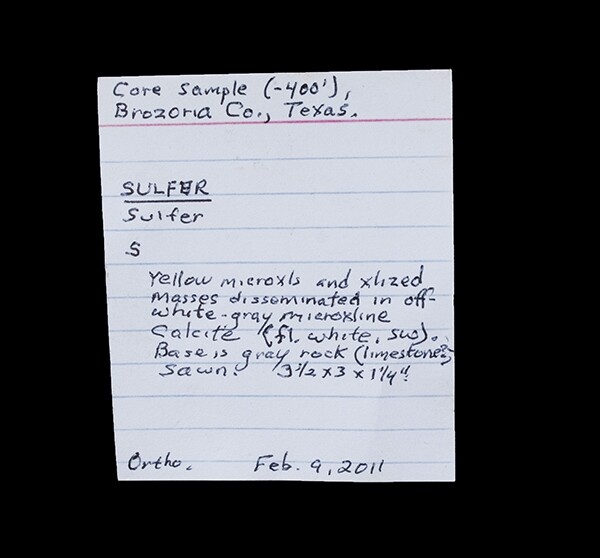 Core sample (-400'),
Brozoria Co., Texas.
SULFER
Sulfer
S
Yellow microxls and xlized
masses disseminated in off-
white-gray microxline
Calcite (fl. white, sw).
Base is gray rock (limestone?)
Sawn. 3 1/2 x 3 x 1 1/4"
Ortho. Feb. 9, 2011